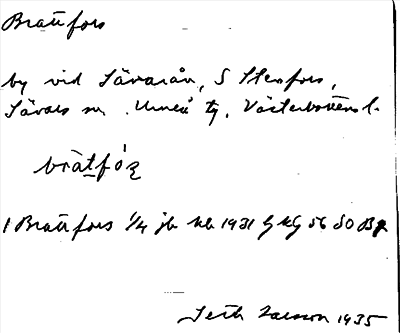 Brattfors
by vid Sävarån, S Stenfors,
Sävars sn. Umeå tg, Västerbottens l.
bràtfó
1 Brattfors 1/4 jb 1931 56 SO
Seth Larsson 1935